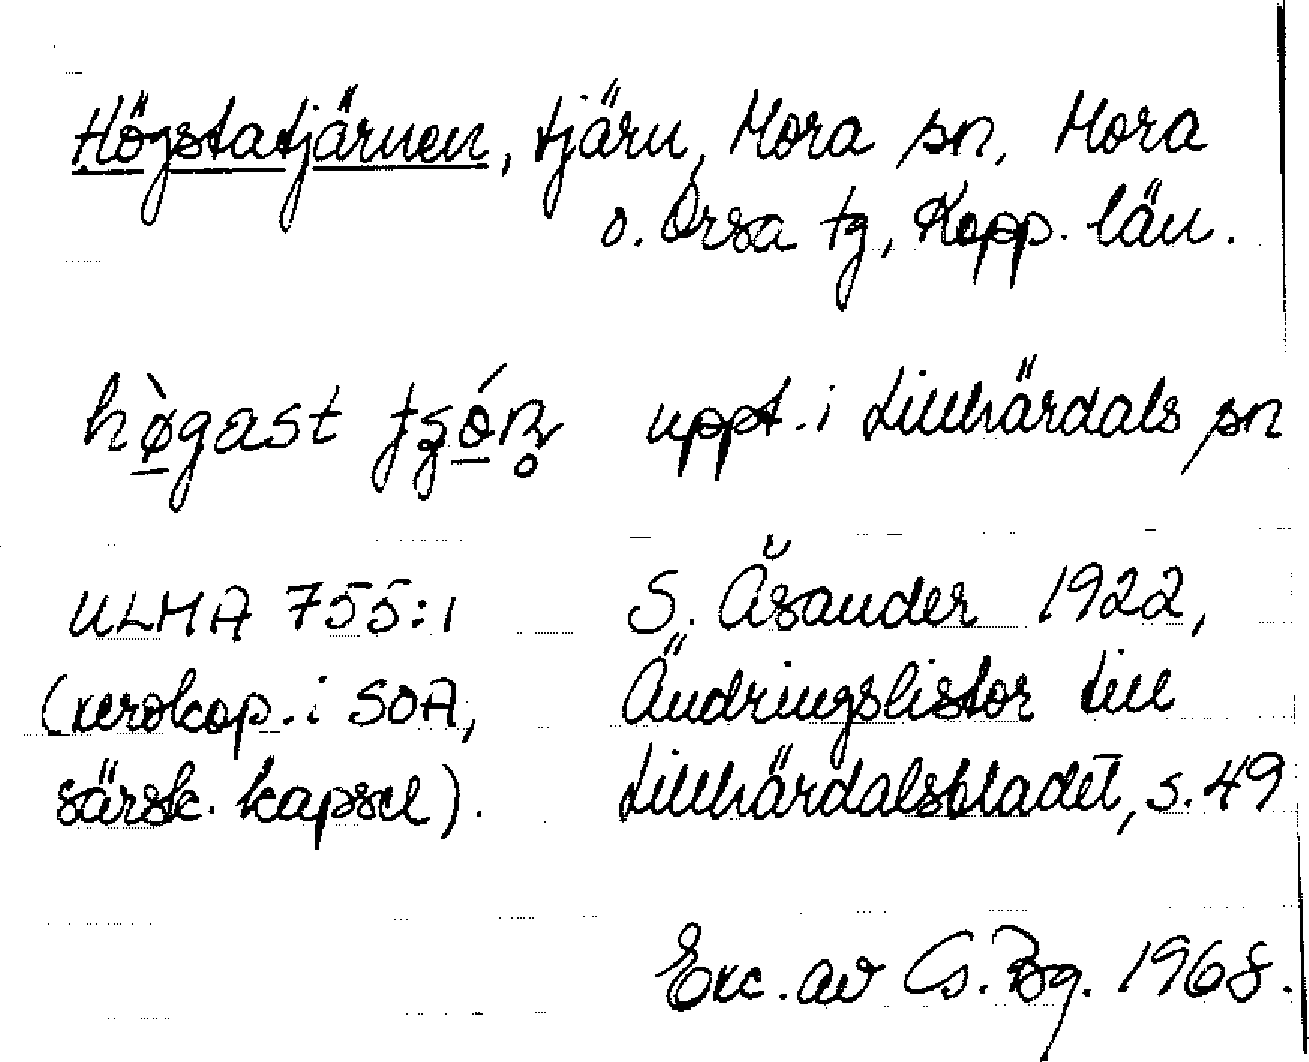 Högstatjärnen, tjärn, Mora sn, Mora
o. Orsa tg, Kopp. län.
hø̀gast uppt. i Lillhärdals sn
ULMA 755:1 S. Åsander 1922,
(xerokop. i SOA, Ändringslistor till
särsk. kapsel). Lillhärdalsbladet, s. 49
Exc. av Cs. Bg. 1968.